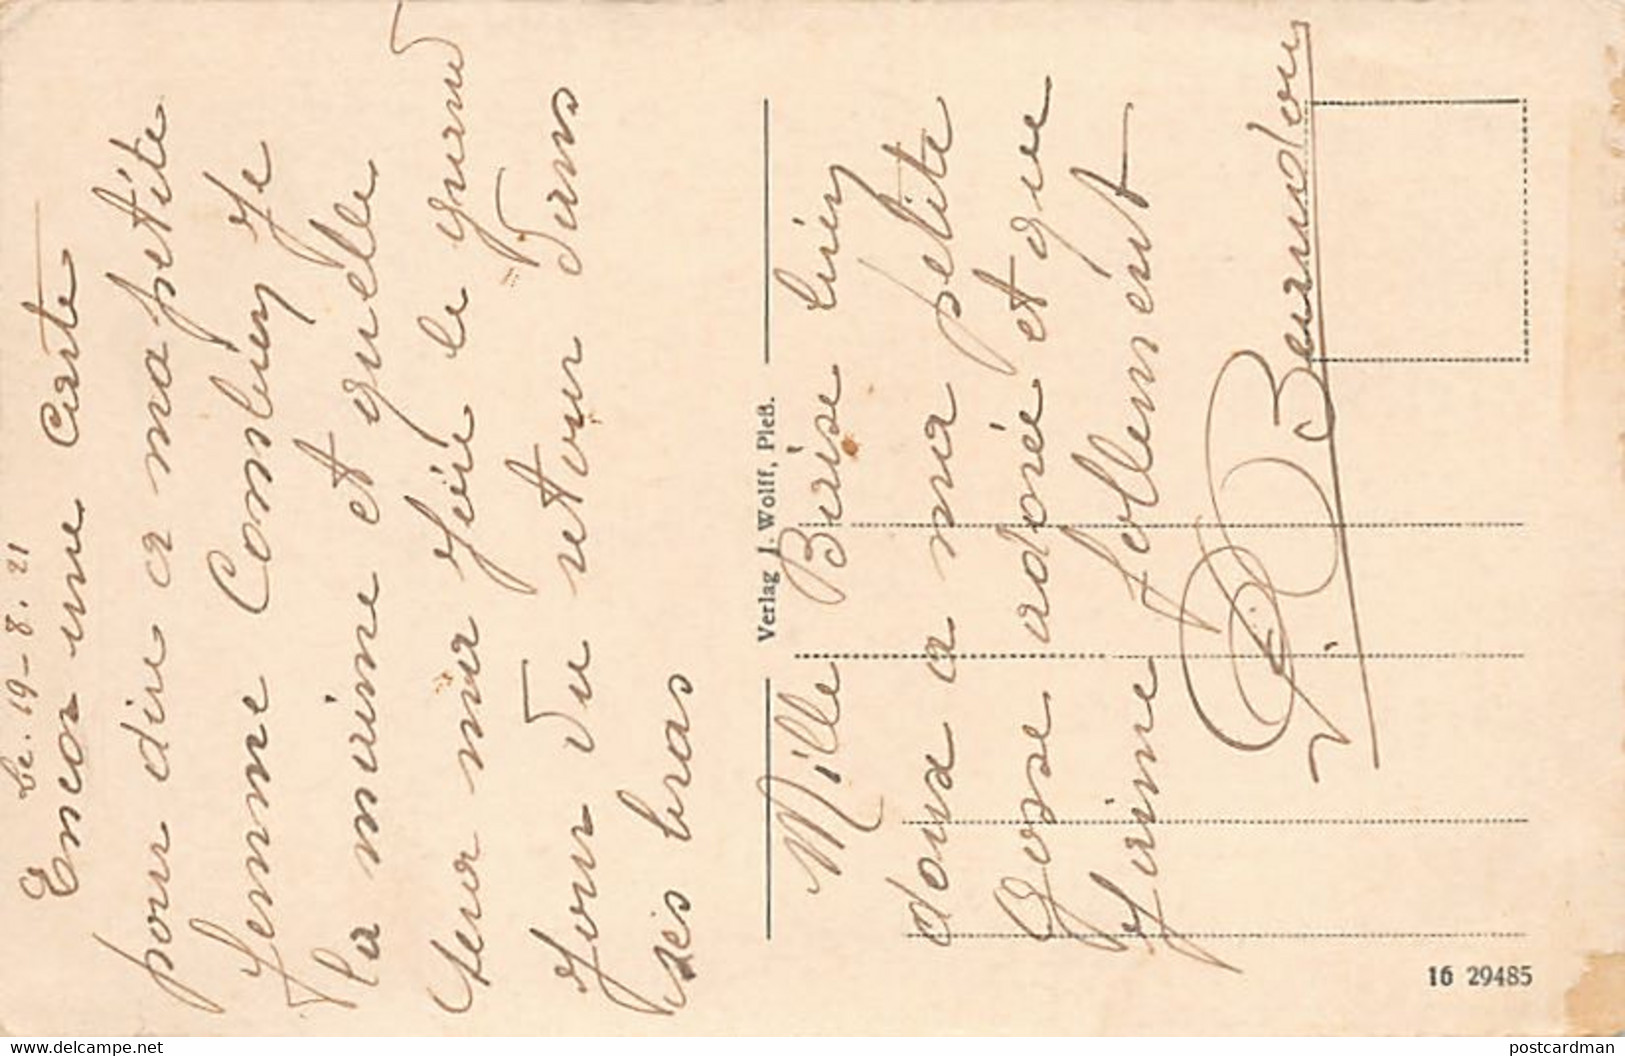 Le. 19-8.21
Encor une Carte
pour dire a ma petite
femme Combien Je
la m'aime et qu'elle
sera ma fiéré le grand
Jour du retour Dans
ses bras
Verlag J. Wolff, Pleß.
Mille Baise bien
doux a ma petite
Gose adorée et que
J'aime follement
Bourudon
16 29485
www.delcampe.net
postcardman